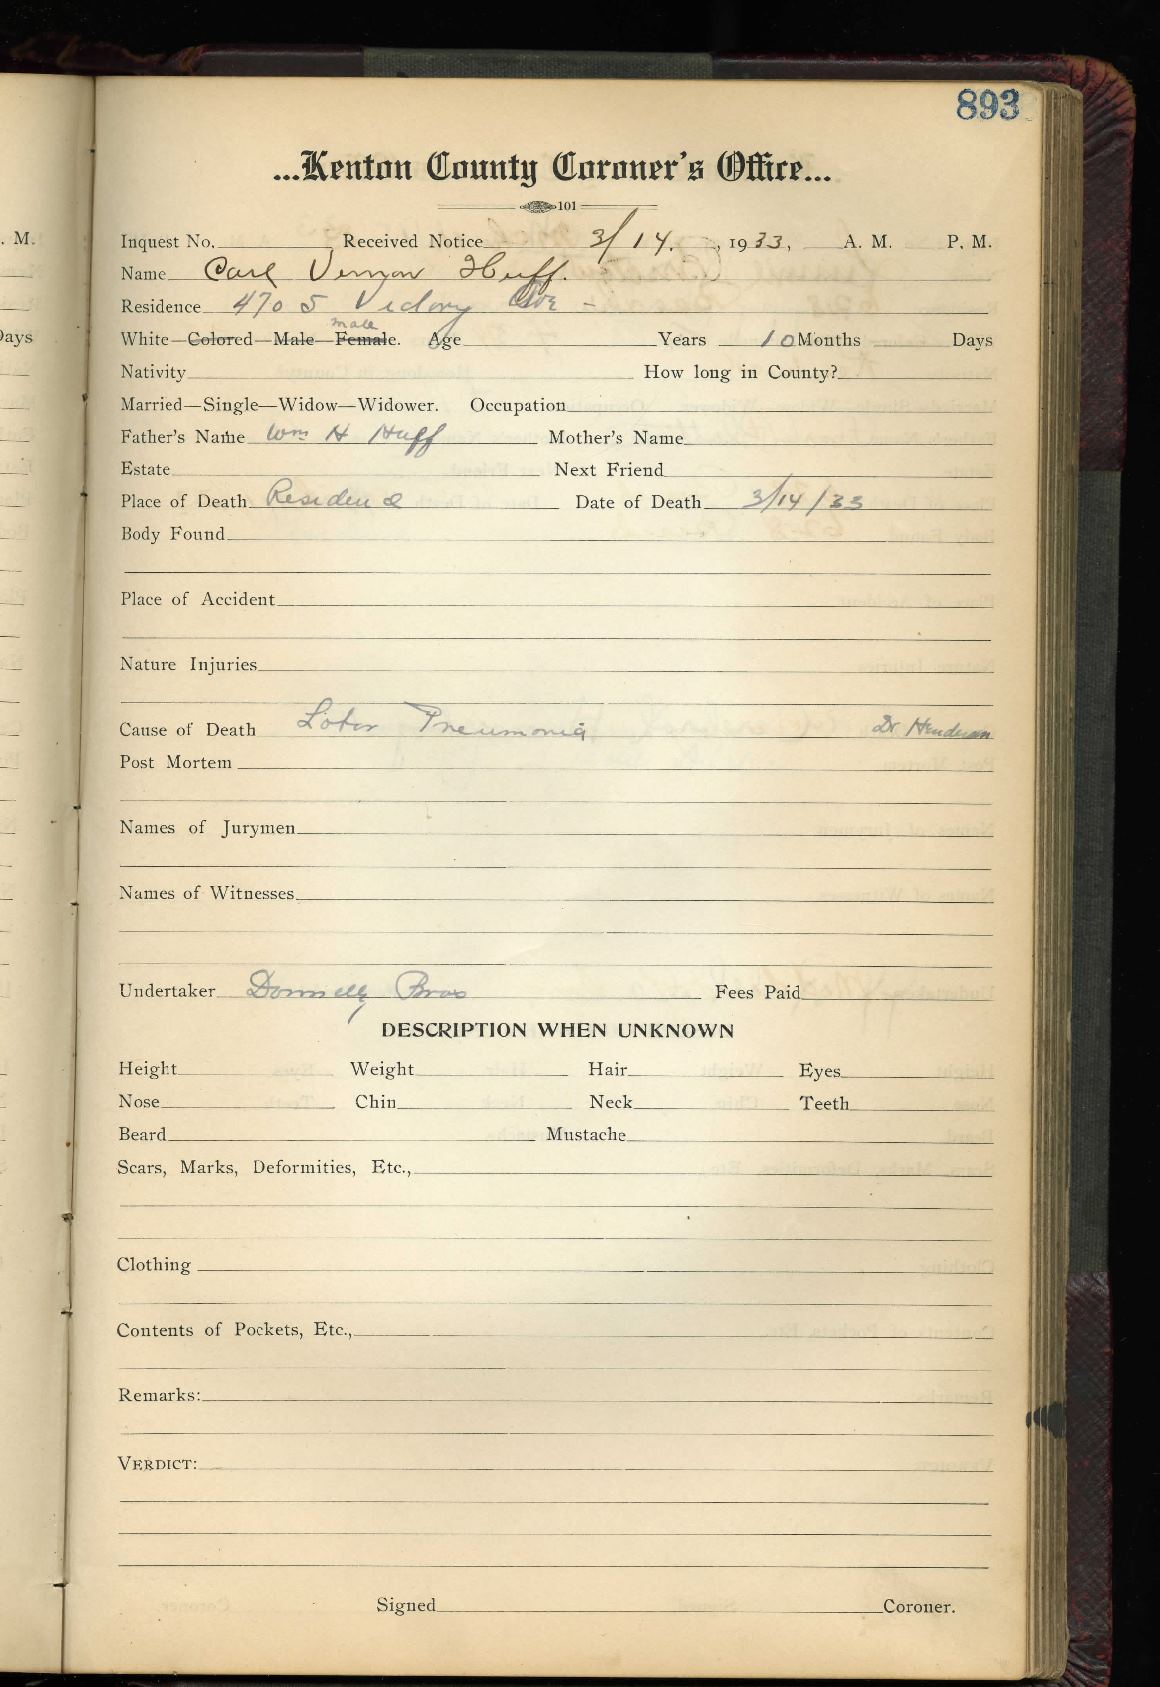 893
...Kenton County Coroner's Office...
101
. M. Inquest No. Received Notice 3/14. , 1933, A. M. P. M.
Name Carl Vernon Huff.
Residence 4705 Victory Ave -
Days White—Colored—Male—Female. male Age Years 10 Months Days
Nativity How long in County?
Married—Single—Widow—Widower. Occupation
Father's Name Wm H Huff Mother's Name
Estate Next Friend
Place of Death Residence Date of Death 3/14/33
Body Found
Place of Accident
Nature Injuries
Cause of Death Lobar Pneumonia Dr
Post Mortem
Names of Jurymen
Names of Witnesses
Undertaker Donnelly Bros Fees Paid
DESCRIPTION WHEN UNKNOWN
Height Weight Hair Eyes
Nose Chin Neck Teeth
Beard Mustache
Scars, Marks, Deformities, Etc.,
Clothing
Contents of Pockets, Etc.,
Remarks:
VERDICT:
Signed Coroner.